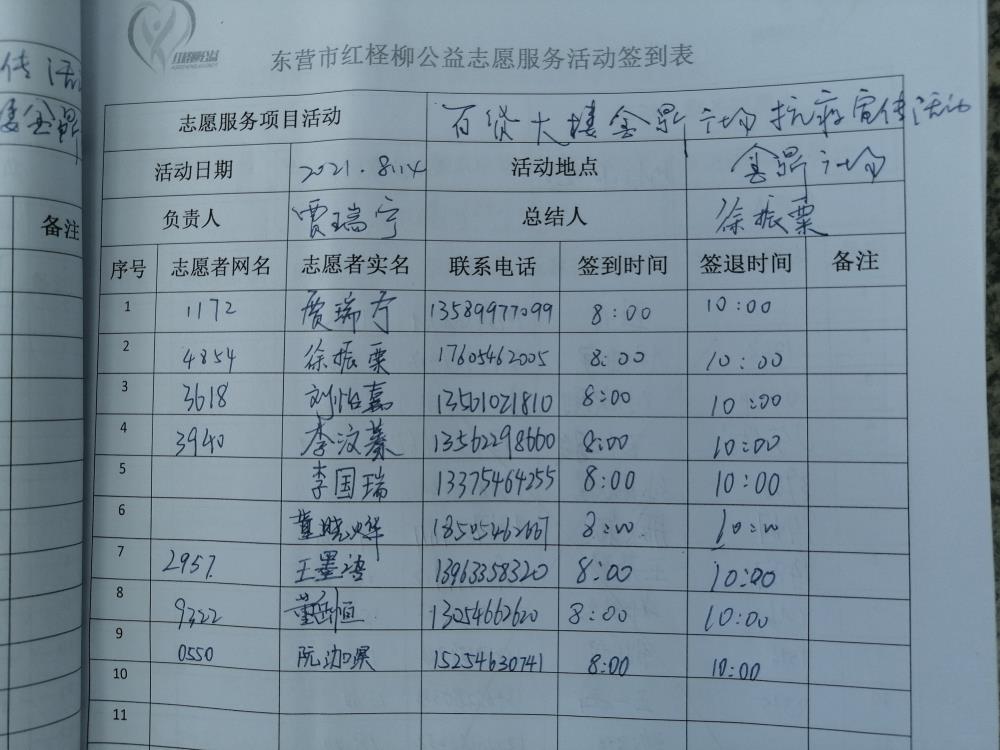 红柽柳公益
东营市红柽柳公益志愿服务活动签到表
志愿服务项目活动 百货大楼金鼎广场抗疫宣传活动
活动日期 2021.8.14 活动地点 金鼎广场
负责人 贾瑞宁 总结人 徐振粟
序号 志愿者网名 志愿者实名 联系电话 签到时间 签退时间 备注
1 1172 贾瑞宁 13589977099 8:00 10:00
2 4854 徐振粟 17605462005 8:00 10:00
3 3618 刘怡嘉 13561021810 8:00 10:00
4 3940 李汶蓁 13562298660 8:00 10:00
5 李国瑞 13375464255 8:00 10:00
6 董晓烨 18505462667 8:00 10:00
7 2957 王墨 13963358320 8:00 10:00
8 9322 董恒 13054662620 8:00 10:00
9 0550 阮 15254630741 8:00 10:00
10
11
传 活
楼金鼎
备注